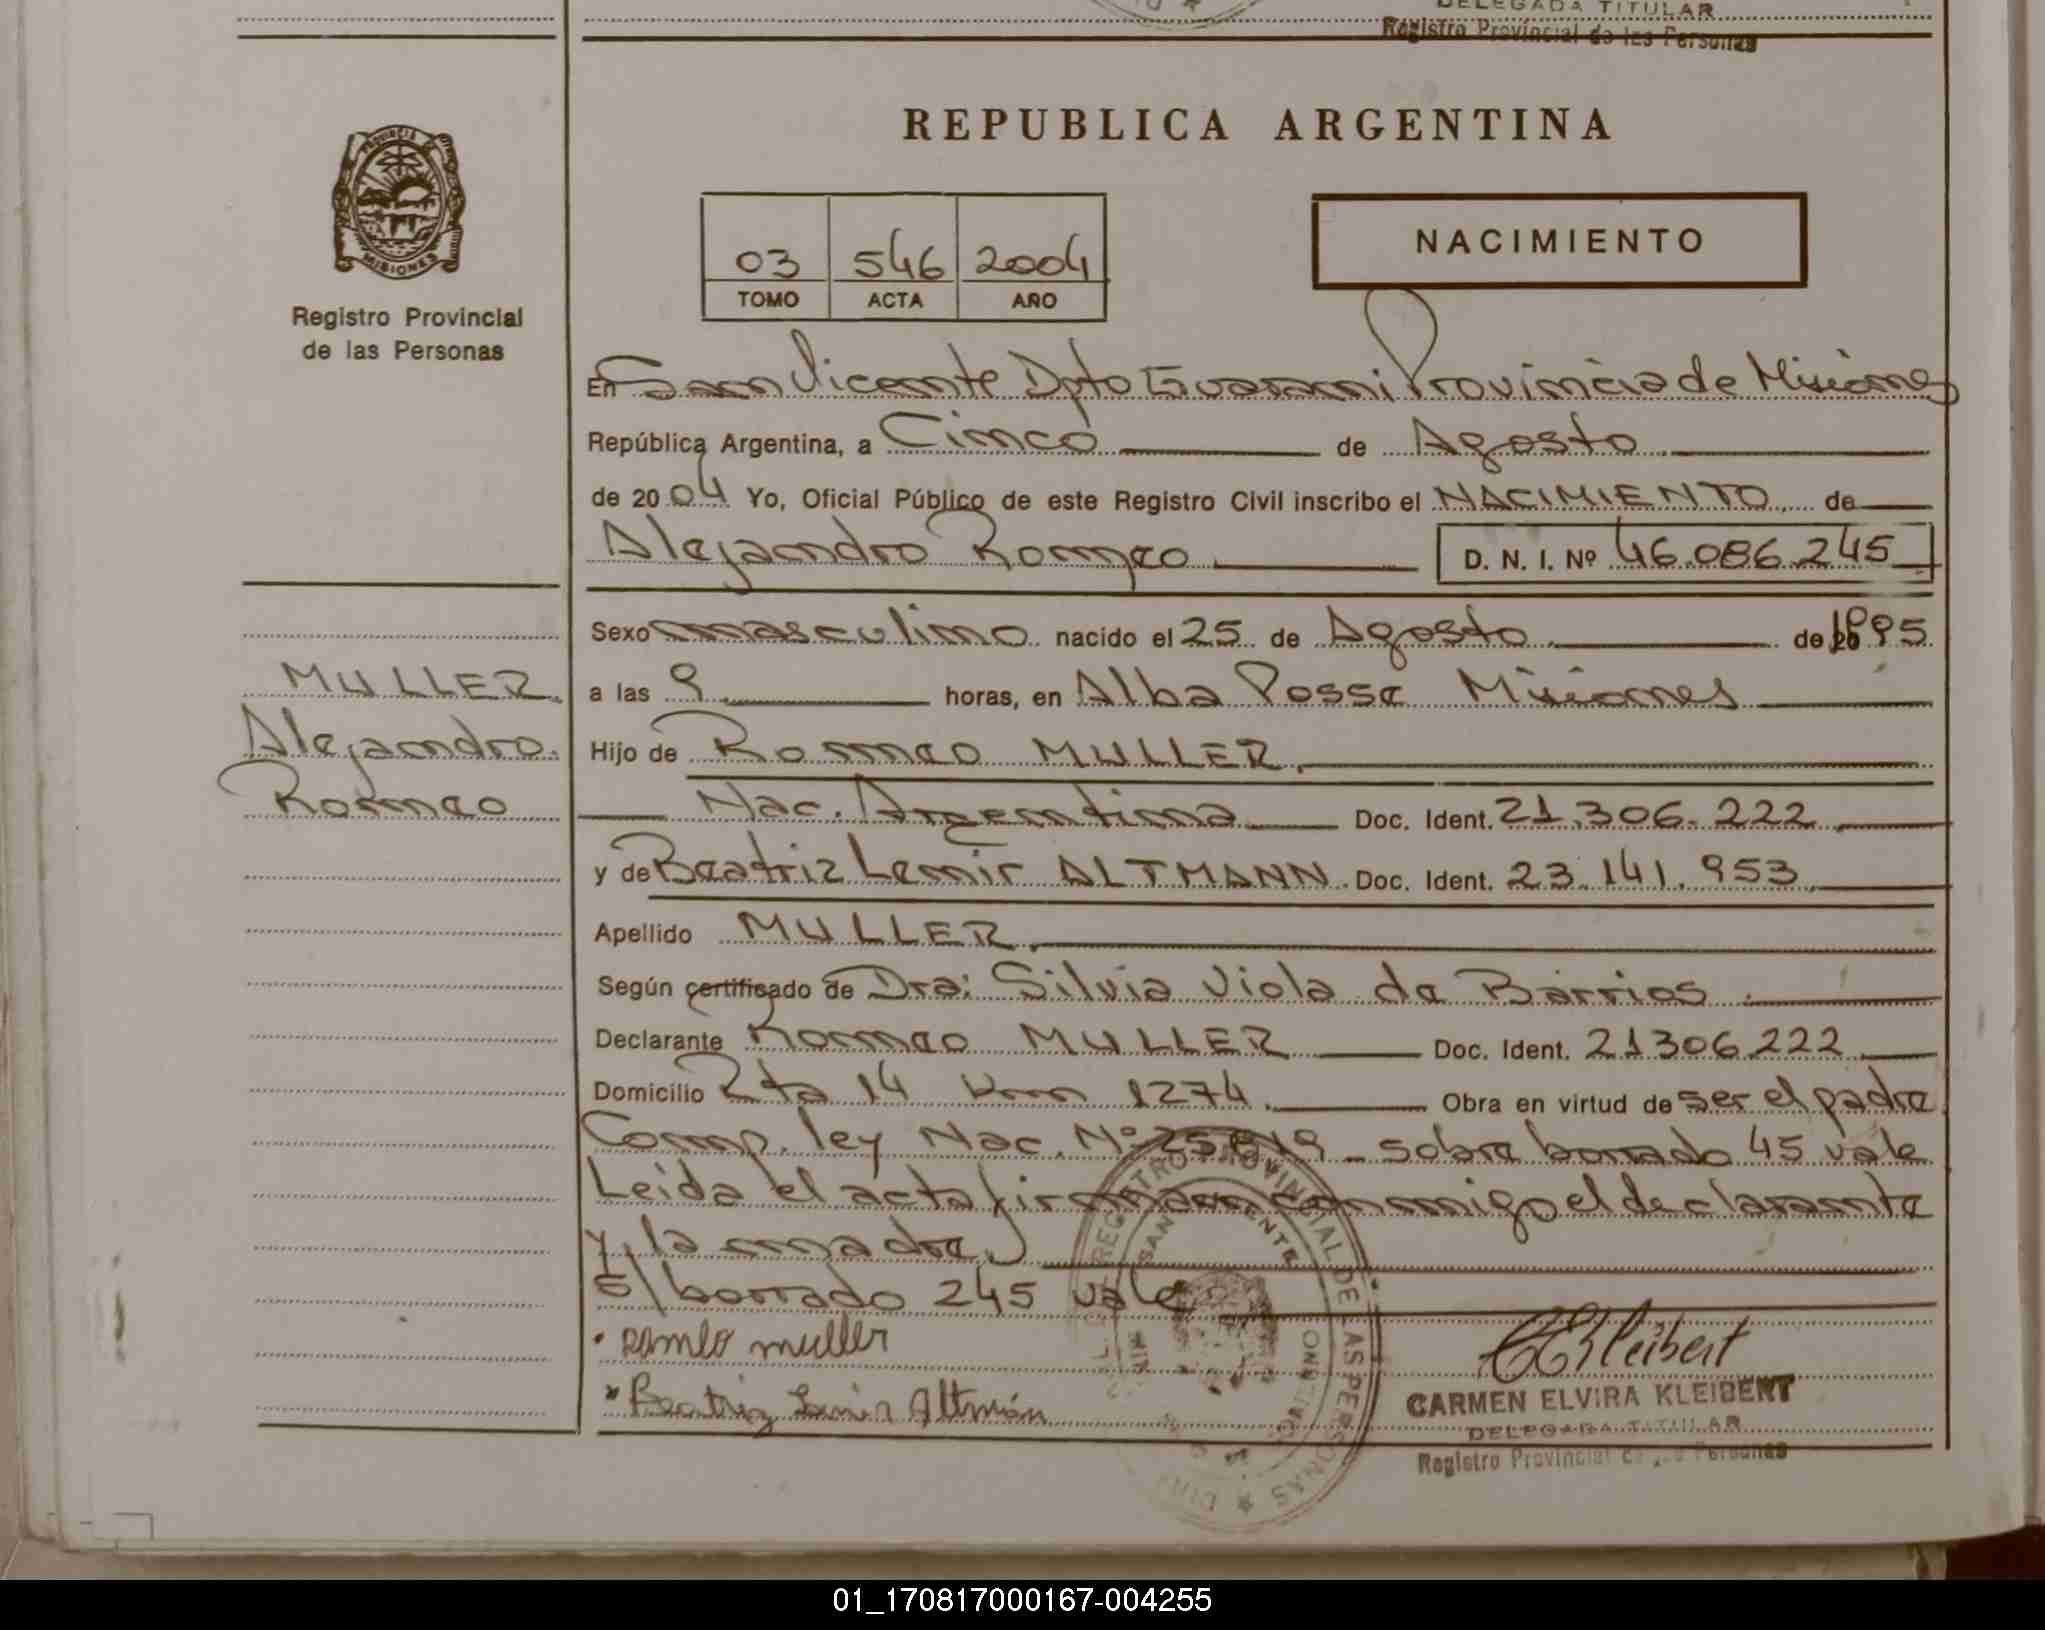 DELEGADA TITULAR
Registro Provincial de las Personas
REPUBLICA ARGENTINA
PROVINCIA DE
MISIONES
Registro Provincial
de las Personas
03 546 2004
TOMO ACTA AÑO
NACIMIENTO
En San Vicente Dpto Guarani Provincia de Misiones
República Argentina, a Cinco de Agosto
de 20 04 Yo, Oficial Público de este Registro Civil inscribo el NACIMIENTO de
Alejandro Romeo D. N. I. Nº 46.086.245
Sexo masculino nacido el 25 de Agosto de 1995
a las 9 horas, en Alba Posse Misiones
MULLER
Alejandro
Romeo
Hijo de Romeo MULLER
Nac. Argentina Doc. Ident. 21.306.222
y de Beatriz Lemir ALTMANN Doc. Ident. 23.141.953
Apellido MULLER
Según certificado de Dra: Silvia Viola de Barrios
Declarante Romeo MULLER Doc. Ident. 21306222
Domicilio Rta 14 Km 1274 Obra en virtud de ser el padre
Comp. ley Nac. Nº 25.819 - sobre borrado 45 vale
Leida el acta firman conmigo el declarante
y la madre
S/borrado 245 vale
muller
Beatriz Lemir Altmán
CKleibert
CARMEN ELVIRA KLEIBERT
DELEGADA TITULAR
Registro Provincial de las Personas
REGISTRO PROVINCIAL DE LAS PERSONAS
SAN VICENTE
01_170817000167-004255